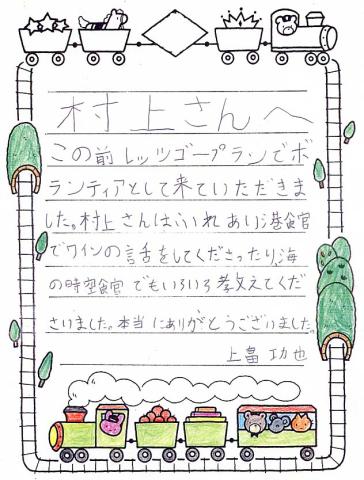 村上さんへ
この前レッツゴープランでボ
ランティアとして来ていただきま
した。村上さんはふれあい港食官
でワインの話をしてくださったり、海
の時望食官でもいろいろ教えてくだ
さいました。本当にありがとうございました。
上畠 功也